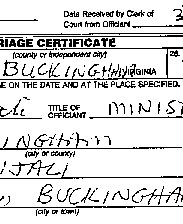 Date Received by Clerk of
Court from Official
RIAGE CERTIFICATE
(county or independent city)
BUCKINGHAM VIRGINIA
28.
E ON THE DATE AND AT THE PLACE SPECIFIED.
TITLE OF
OFFICIAL MINIS
INGHAM
(city or county)
, BUCKINGHA
(city or town)